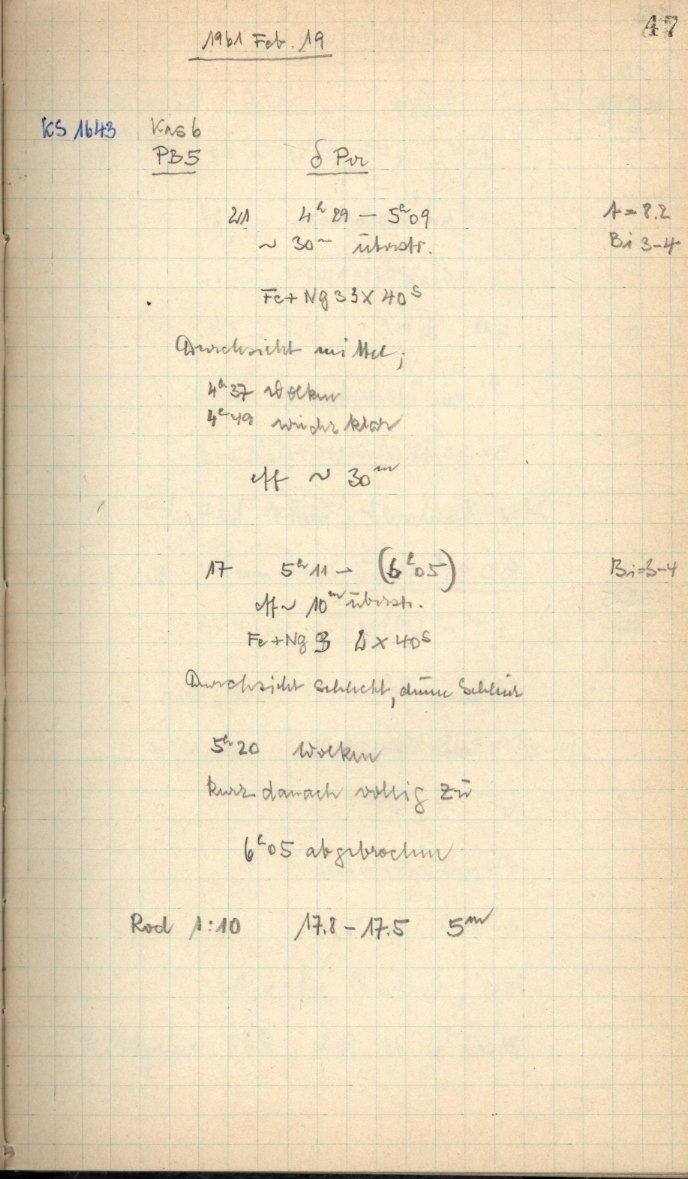 47
1961 Feb. 19
KS 1643 Kas 6
PB5 δ Per
21 4ʰ29 – 5ʰ09 t = 8.2
~ 30ᵐ überstr. Bi 3-4
Fe+Ng 33 × 40ˢ
Durchsicht mittel;
4ʰ37 Wolken
4ʰ49 wieder klar
eff ~ 30ᵐ
17 5ʰ11 – (6ʰ05) Bi=3-4
eff ~ 10ᵐ überstr.
Fe+Ng 3 × 40ˢ
Durchsicht schlecht, dünne Schleier
5ʰ20 Wolken
kurz danach völlig zu
6ʰ05 abgebrochen
Rod 1:10 17.8 – 17.5 5ᵐ